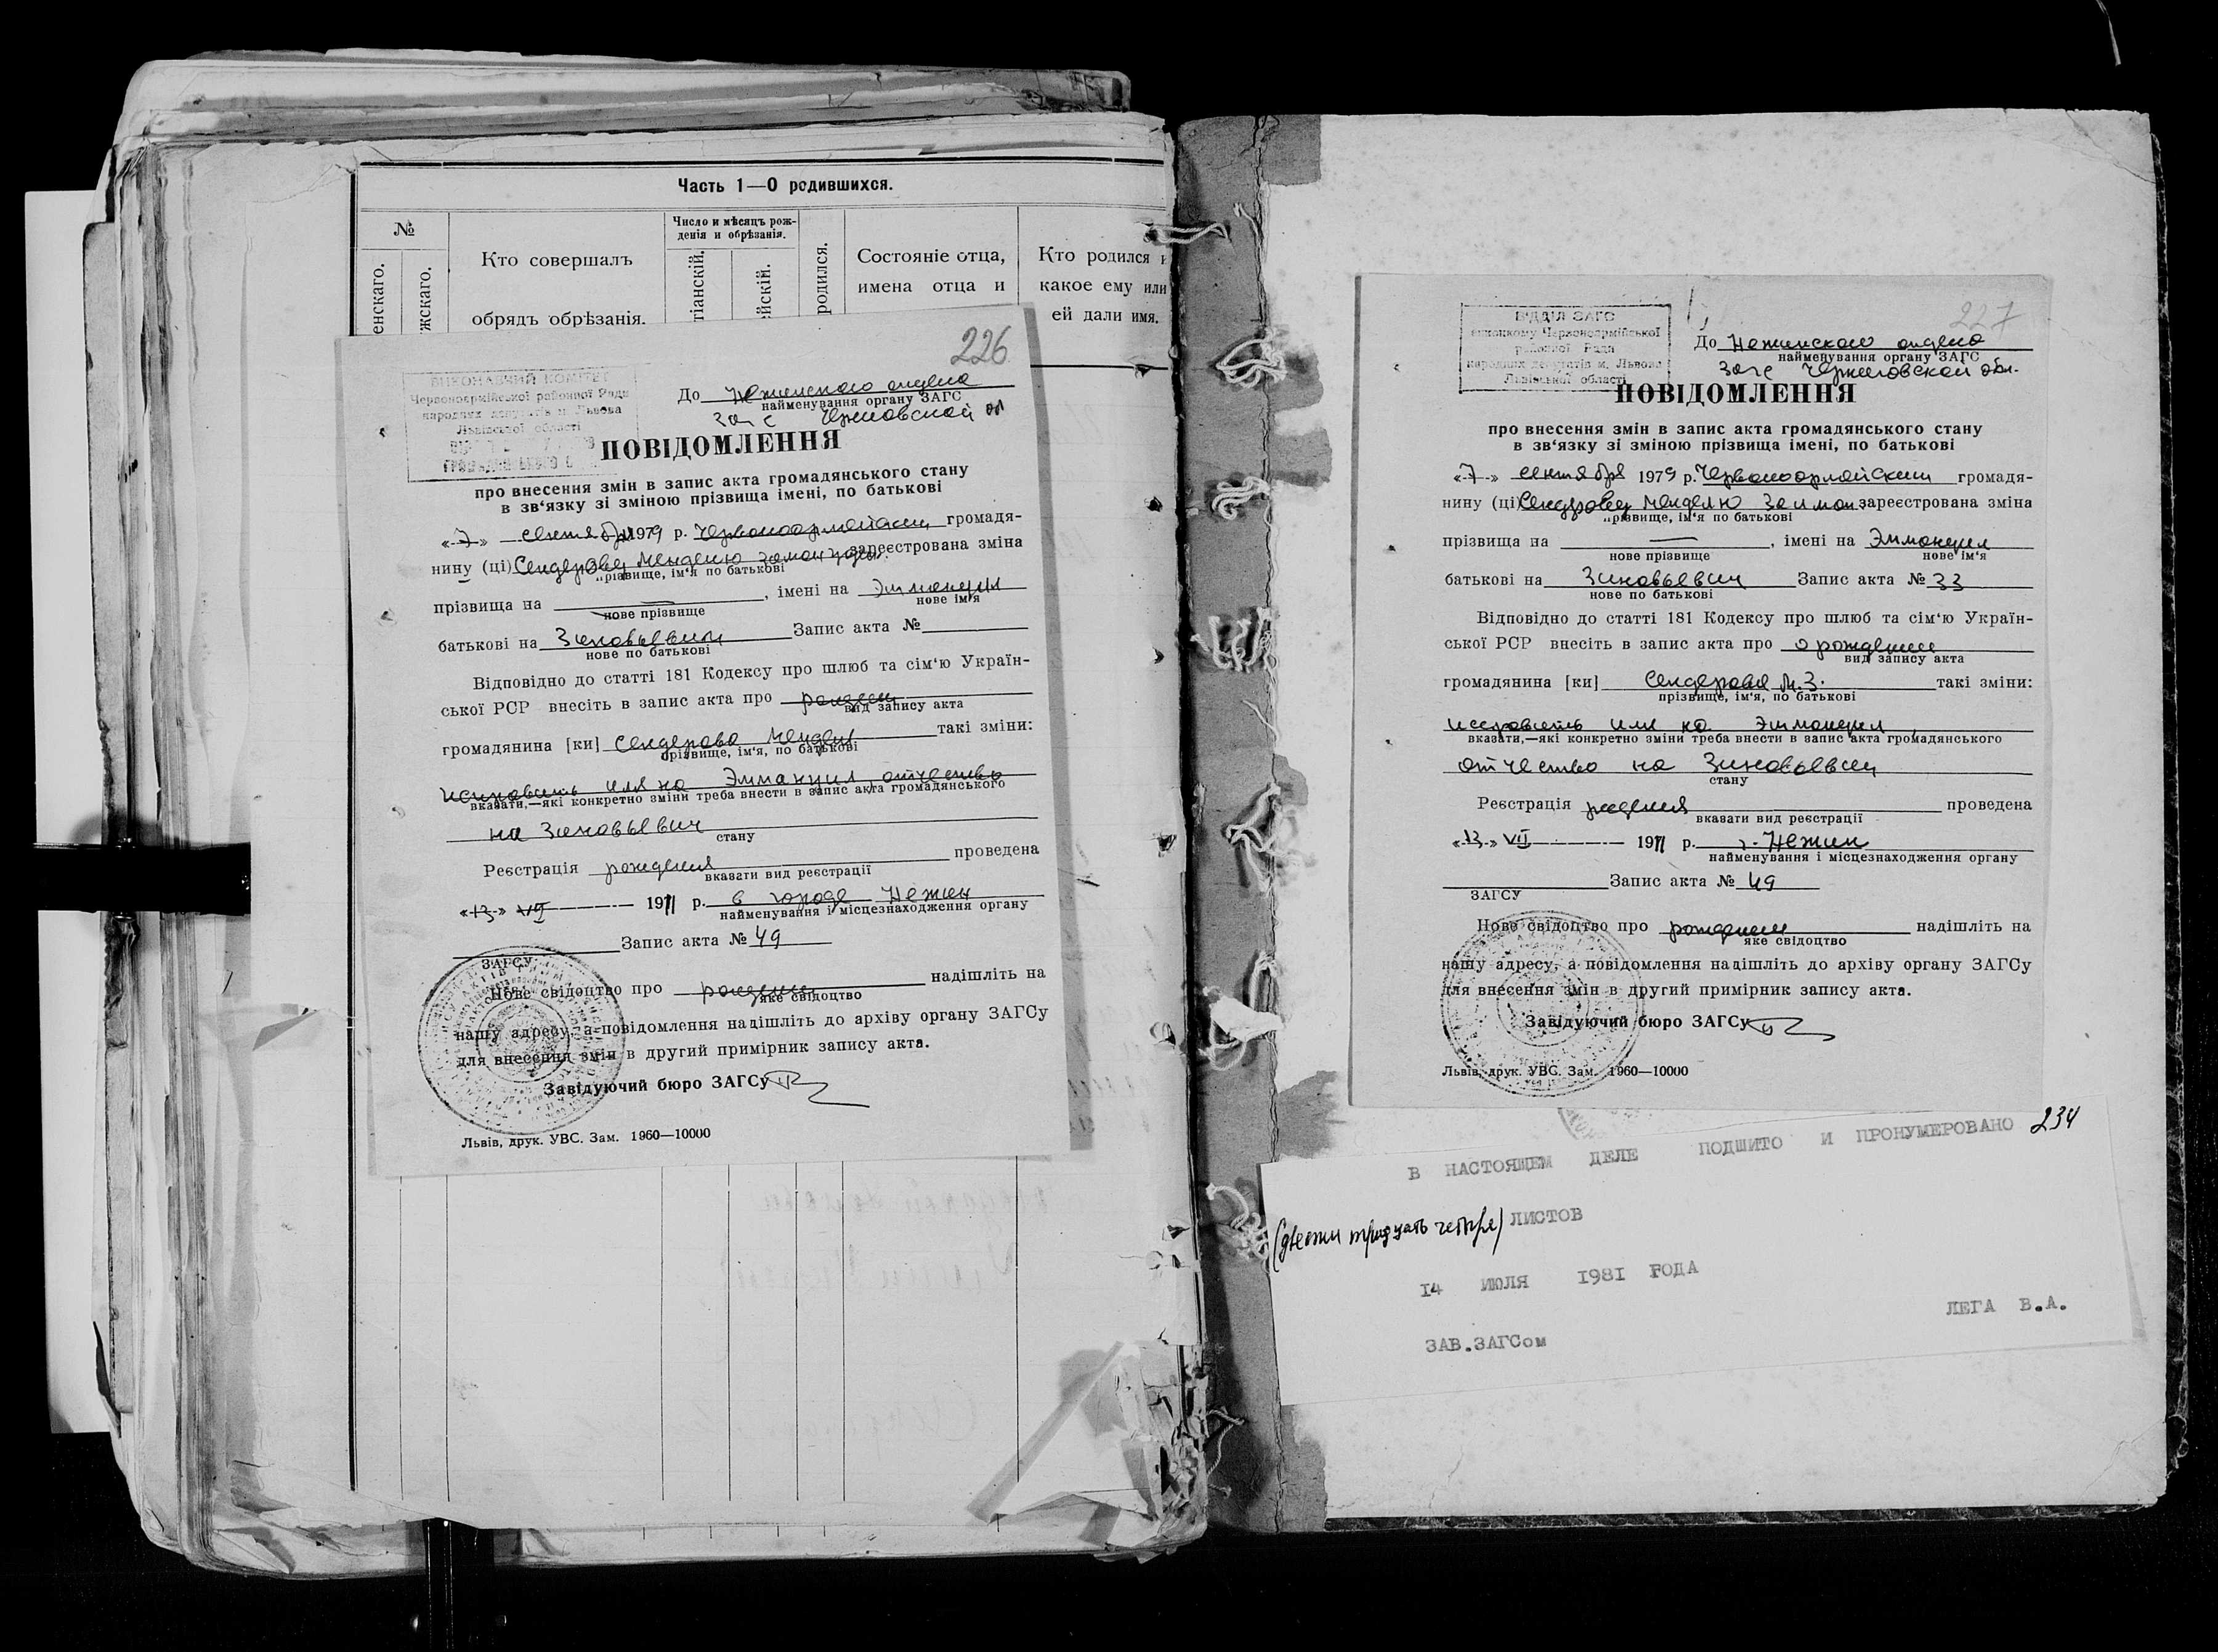 Часть 1—О родившихся.
№
Кто совершалъ
обрядъ обрѣзанія.
Число и мѣсяцъ рож-
денія и обрѣзанія.
родился.
Состояніе отца,
имена отца и
Кто родился и
какое ему или
ей дали имя.
енскаго.
жскаго.
тіанскій.
ейскій.
226
ВИКОНАВЧИЙ КОМІТЕТ
Червоноармійської районної Ради
народних депутатів м. Львова
Львівської області
До Нежинского отдела
найменування органу ЗАГС
Загс Черниговской об
ПОВІДОМЛЕННЯ
про внесення змін в запис акта громадянського стану
в зв'язку зі зміною прізвища імені, по батькові
«7» сентября 1979 р. Червоноармейским громадя-
нину (ці) Сендерову Менделю зареєстрована зміна
прізвище, ім'я по батькові
прізвища на —, імені на Эммануил
нове прізвище нове ім'я
батькові на Зиновьевич Запис акта №
нове по батькові
Відповідно до статті 181 Кодексу про шлюб та сім'ю Україн-
ської РСР внесіть в запис акта про рожден
вид запису акта
громадянина [ки] Сендерова Мендел такі зміни:
прізвище, ім'я, по батькові
исправить имя на Эммануил, отчество
вказати,—які конкретно зміни треба внести в запис акта громадянського
на Зиновьевич
стану
Реєстрація рождения проведена
вказати вид реєстрації
«13» VII 1911 р. в городе Нежин
найменування і місцезнаходження органу
Запис акта № 49
ЗАГСУ
Нове свідоцтво про рождении надішліть на
яке свідоцтво
нашу адресу, а повідомлення надішліть до архіву органу ЗАГСу
для внесення змін в другий примірник запису акта.
Завідуючий бюро ЗАГСу
Львів, друк. УВС. Зам. 1960—10000
227
ВІДДІЛ ЗАГС
виконкому Червоноармійської
районної Ради
народних депутатів м. Львова
Львівської області
До Нежинского отдела
найменування органу ЗАГС
Загс Черниговской обл.
ПОВІДОМЛЕННЯ
про внесення змін в запис акта громадянського стану
в зв'язку зі зміною прізвища імені, по батькові
«7» сентября 1979 р. Червоноармейским громадя-
нину (ці) Сендерову Менделю Залман. зареєстрована зміна
прізвище, ім'я по батькові
прізвища на —, імені на Эммануил
нове прізвище нове ім'я
батькові на Зиновьевич Запис акта № 33
нове по батькові
Відповідно до статті 181 Кодексу про шлюб та сім'ю Україн-
ської РСР внесіть в запис акта про о рождении
вид запису акта
громадянина [ки] Сендерова М.З. такі зміни:
прізвище, ім'я, по батькові
исправить имя на Эммануил,
вказати,—які конкретно зміни треба внести в запис акта громадянського
отчество на Зиновьевич
стану
Реєстрація рождения проведена
вказати вид реєстрації
«13» VII 1911 р. г. Нежин
найменування і місцезнаходження органу
Запис акта № 49
ЗАГСУ
Нове свідоцтво про рождении надішліть на
яке свідоцтво
нашу адресу, а повідомлення надішліть до архіву органу ЗАГСу
для внесення змін в другий примірник запису акта.
Завідуючий бюро ЗАГСу
Львів, друк. УВС. Зам. 1960—10000
В НАСТОЯЩЕМ ДЕЛЕ ПОДШИТО И ПРОНУМЕРОВАНО 234
(двести тридцать четыре) ЛИСТОВ
14 ИЮЛЯ 1981 ГОДА
ЛЕГА В.А.
ЗАВ.ЗАГСом